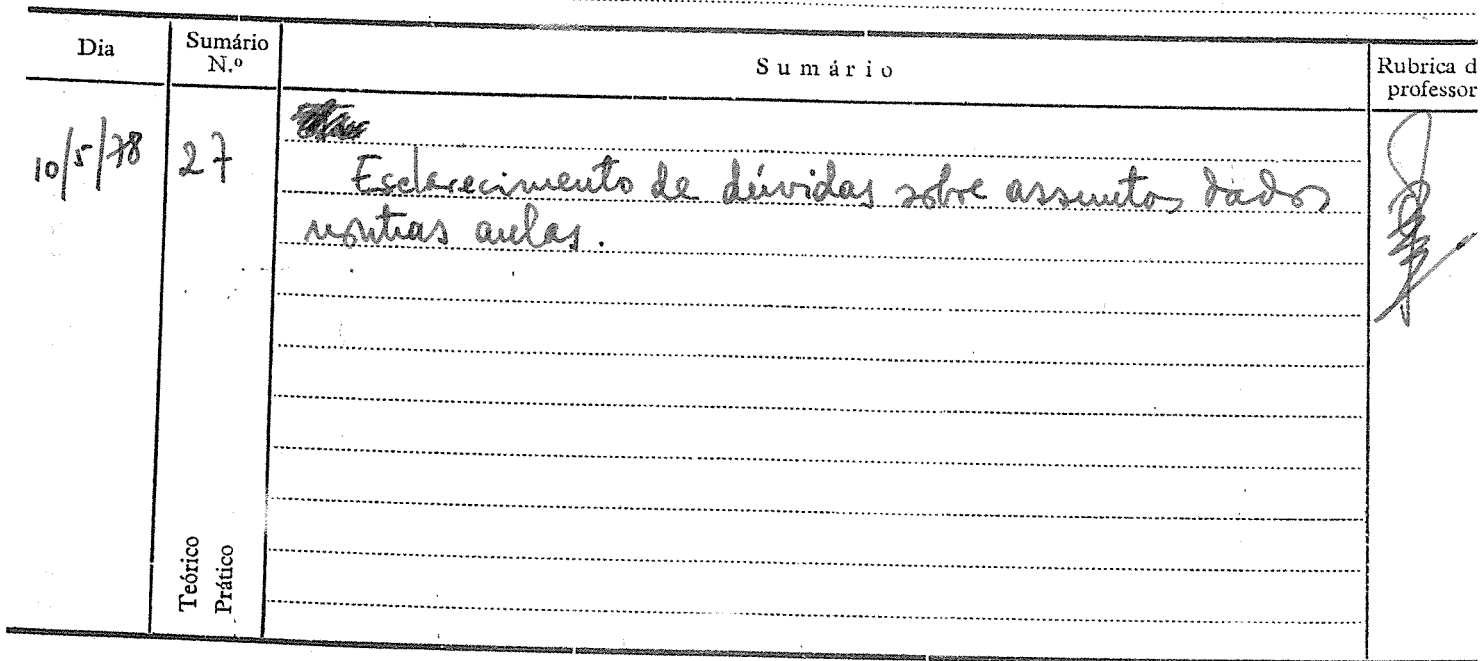 Dia
Sumário
N.º
Sumário
Rubrica d
professor
10/5/78
27
Esclarecimento de dúvidas sobre assuntos dados
noutras aulas.
Teórico
Prático